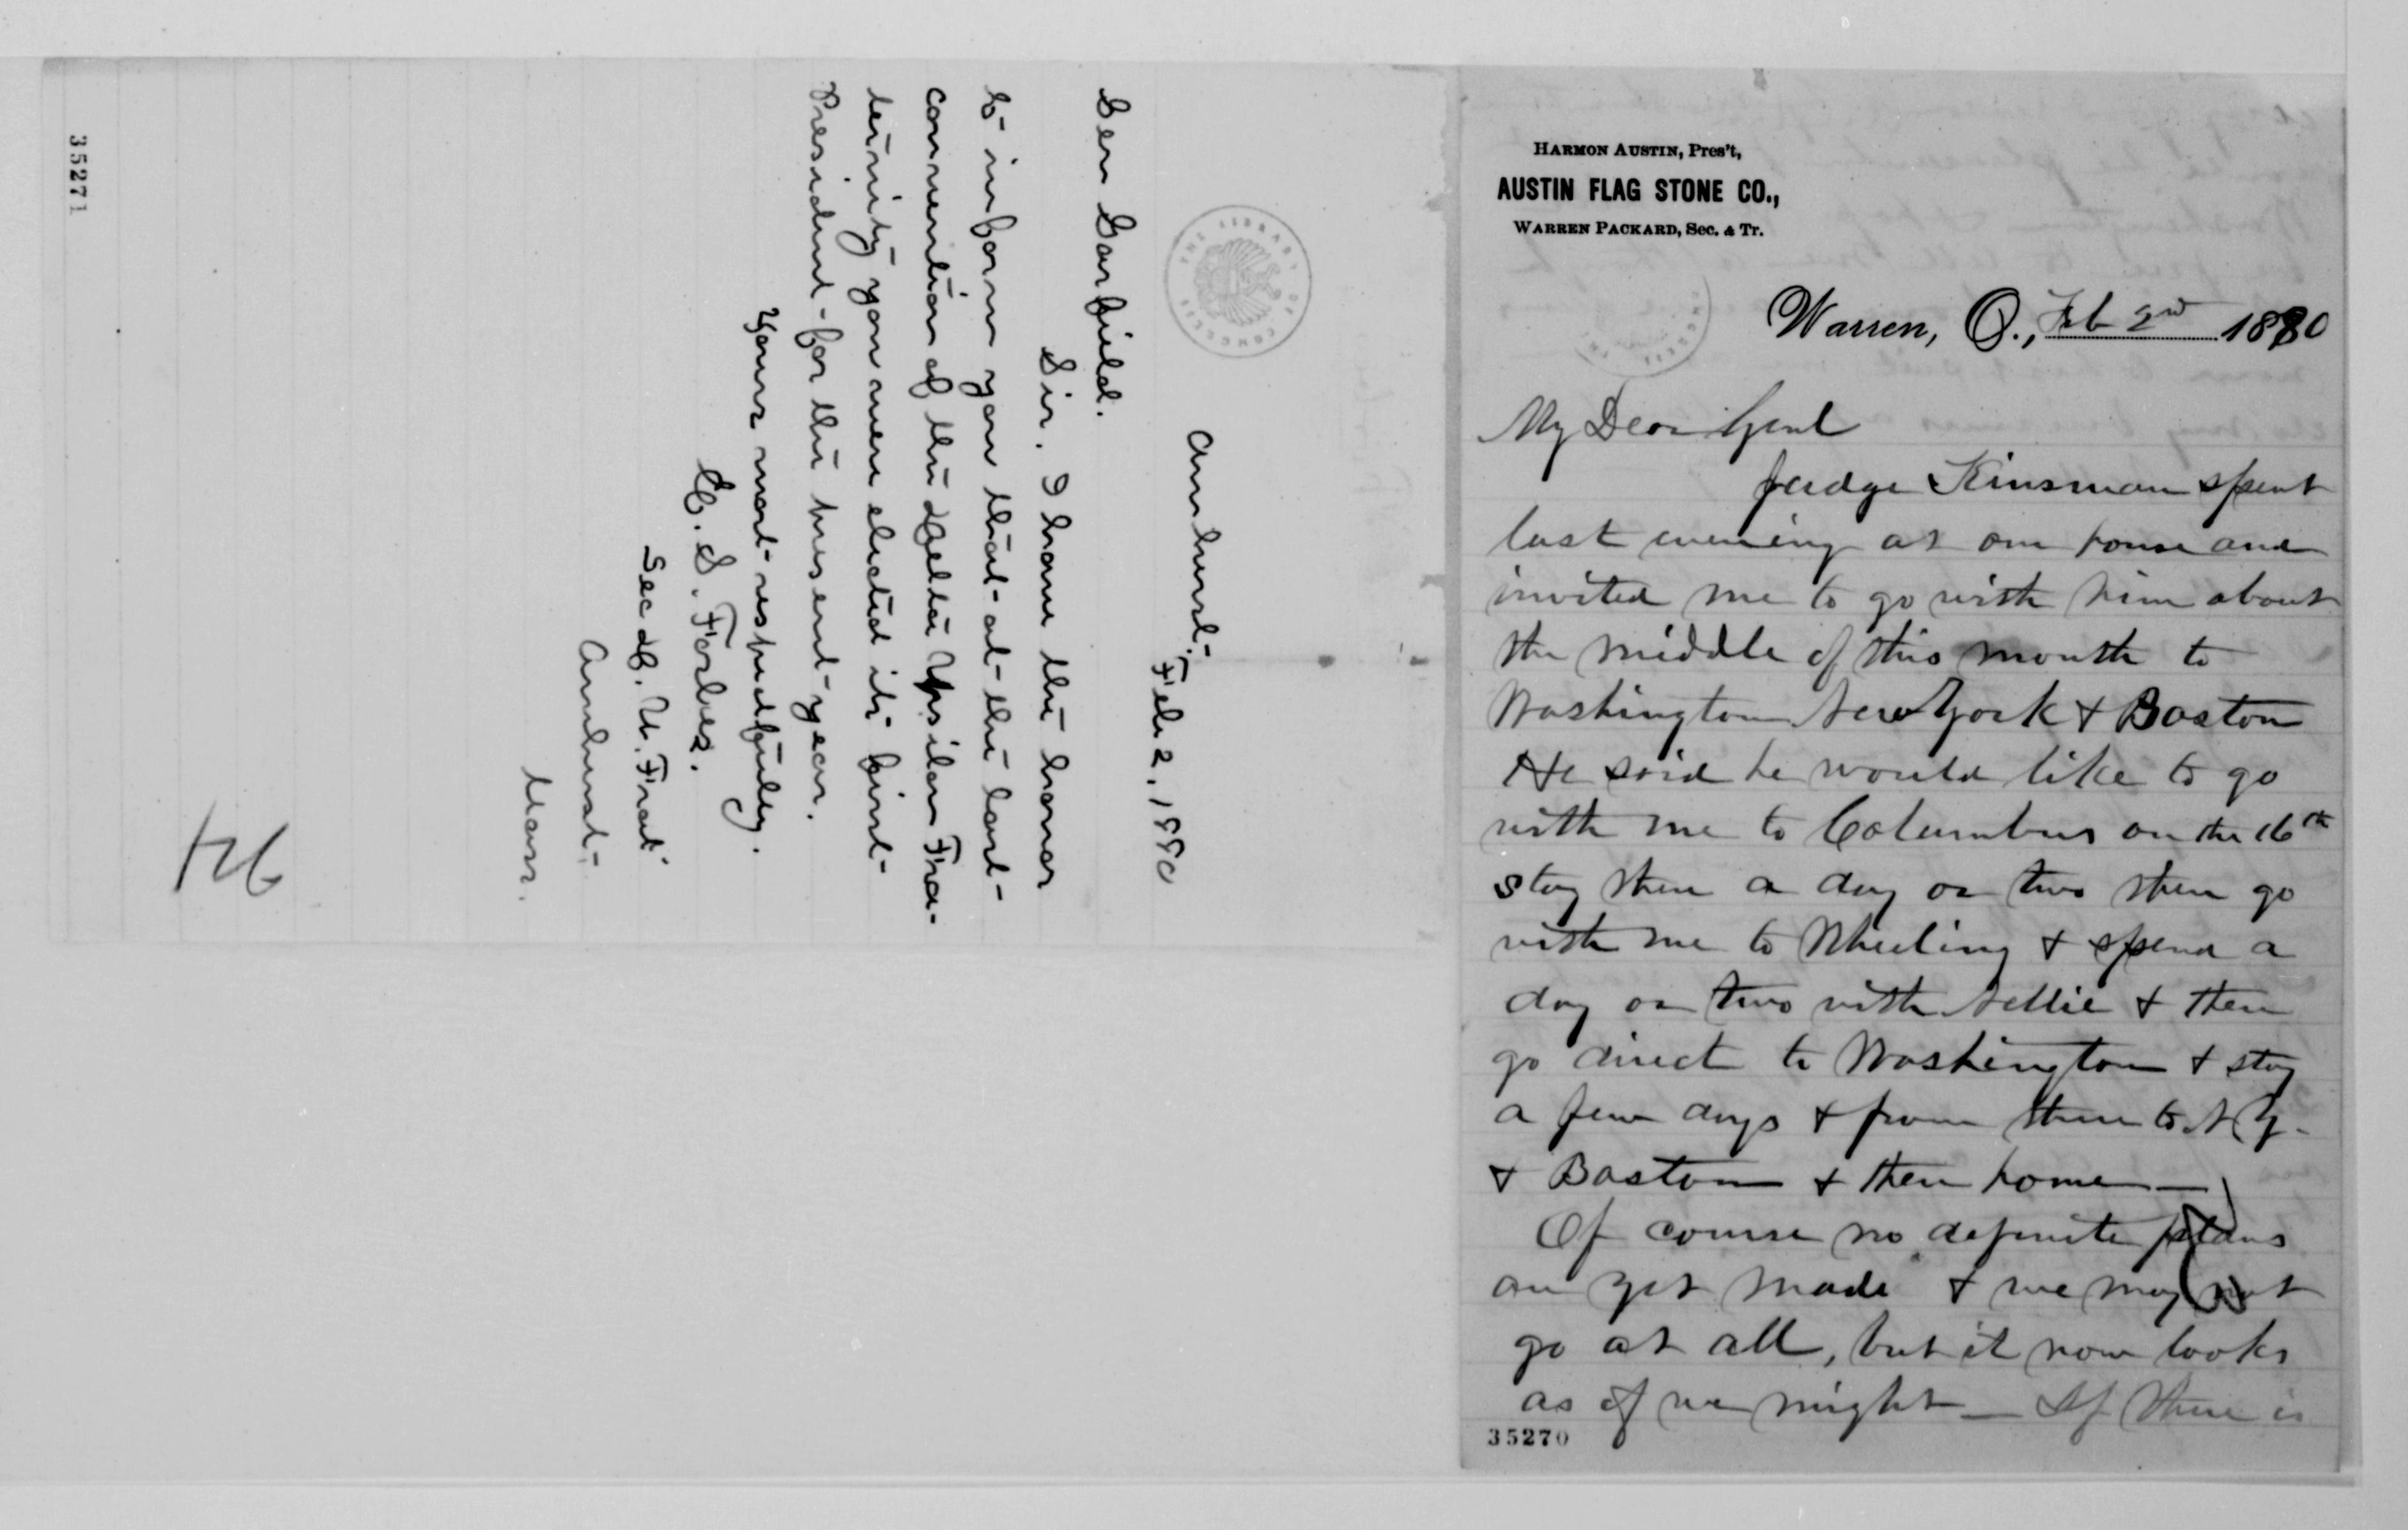 Amherst,
Feb 2, 1880
Gen Garfield.
Sir. I have the honor
to inform you that at the last
convention of the Delta Upsilon Fra-
ternity you were elected its first
President for the present year.
Yours most respectfully.
C. S. Forbes.
Sec D. U. Frat
Amherst
Mass.
35271
THE LIBRARY OF CONGRESS
HARMON AUSTIN, Pres't,
AUSTIN FLAG STONE CO.,
WARREN PACKARD, Sec. & Tr.
Warren, O., Feb 2nd 1880
My Dear Genl
Judge Kinsman spent
last evening at our house and
invited me to go with him about
the middle of this month to
Washington New York & Boston
He said he would like to go
with me to Columbus on the 16th
stay there a day or two then go
with me to Wheeling & spend a
day or two with Nellie & then
go direct to Washington & stay
a few days & from there to N Y.
& Boston & then home —
Of course no definite plans
are yet made & we may not
go at all, but it now looks
as if we might — If there is
35270